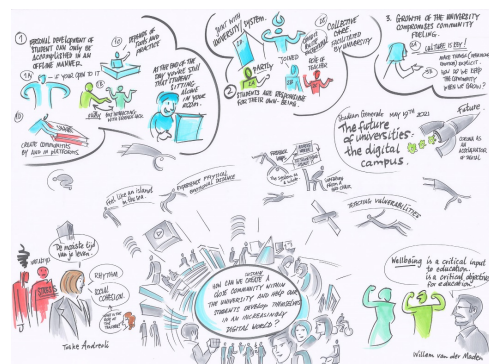 1 PERSONAL DEVELOPMENT OF
STUDENT CAN ONLY BE
ACCOMPLISHED IN AN
OFFLINE MANNER.
1A IF YOUR OPEN TO IT
1B
1C DEPENDS OF
TOOLS AND
PRACTICE
1D
CREATE COMMUNITIES
BY AND IN PLATFORMS
AT THE END OF THE
DAY YOU'RE STILL
THAT STUDENT
SITTING
ALONE
IN YOUR
ROOM.
JOINT WITH
UNIVERSITY/SYSTEM.
2A
PARTLY
2B
2
STUDENTS ARE RESPONSIBLE
FOR THEIR OWN-BEING.
ROLE OF
TEACHER
2D COLLECTIVE
CARE
FACILITATED
BY UNIVERSITY
3. GROWTH OF THE UNIVERSITY
COMPROMISES COMMUNITY
FEELING.
3A
CULTURE IS KEY!
EXPLICIT.
HOW DO WE KEEP
THE COMMUNITY
WHEN WE GROW?
Studium Generale MAY 19TH 2021
The future
of universities:
the digital
campus.
Future.
CORONA AS
AN
ACCELERATOR
OF DIGITAL
FEEL LIKE AN ISLAND
IN THE SEA.
EXPERIENCE PHYSICAL
EMOTIONAL DISTANCE
FEEDBACK
LOOPS
THE SYSTEM AS
A WHOLE
DETECTING VULNERABILITIES
De mooiste tijd
van je leven.
STRESS
RHYTHM
SOCIAL
COHESION.
WHAT IS THE
ROLE OF
THE
TEACHER?
Toske Andreoli
HOW CAN WE CREATE A
CLOSE COMMUNITY WITHIN
THE UNIVERSITY AND HELP OUR
STUDENTS DEVELOP THEMSELVES
IN AN INCREASINGLY
DIGITAL WORLD?
Wellbeing is a critical input
to education.
is a critical objective
for education.
Willem van der Maden